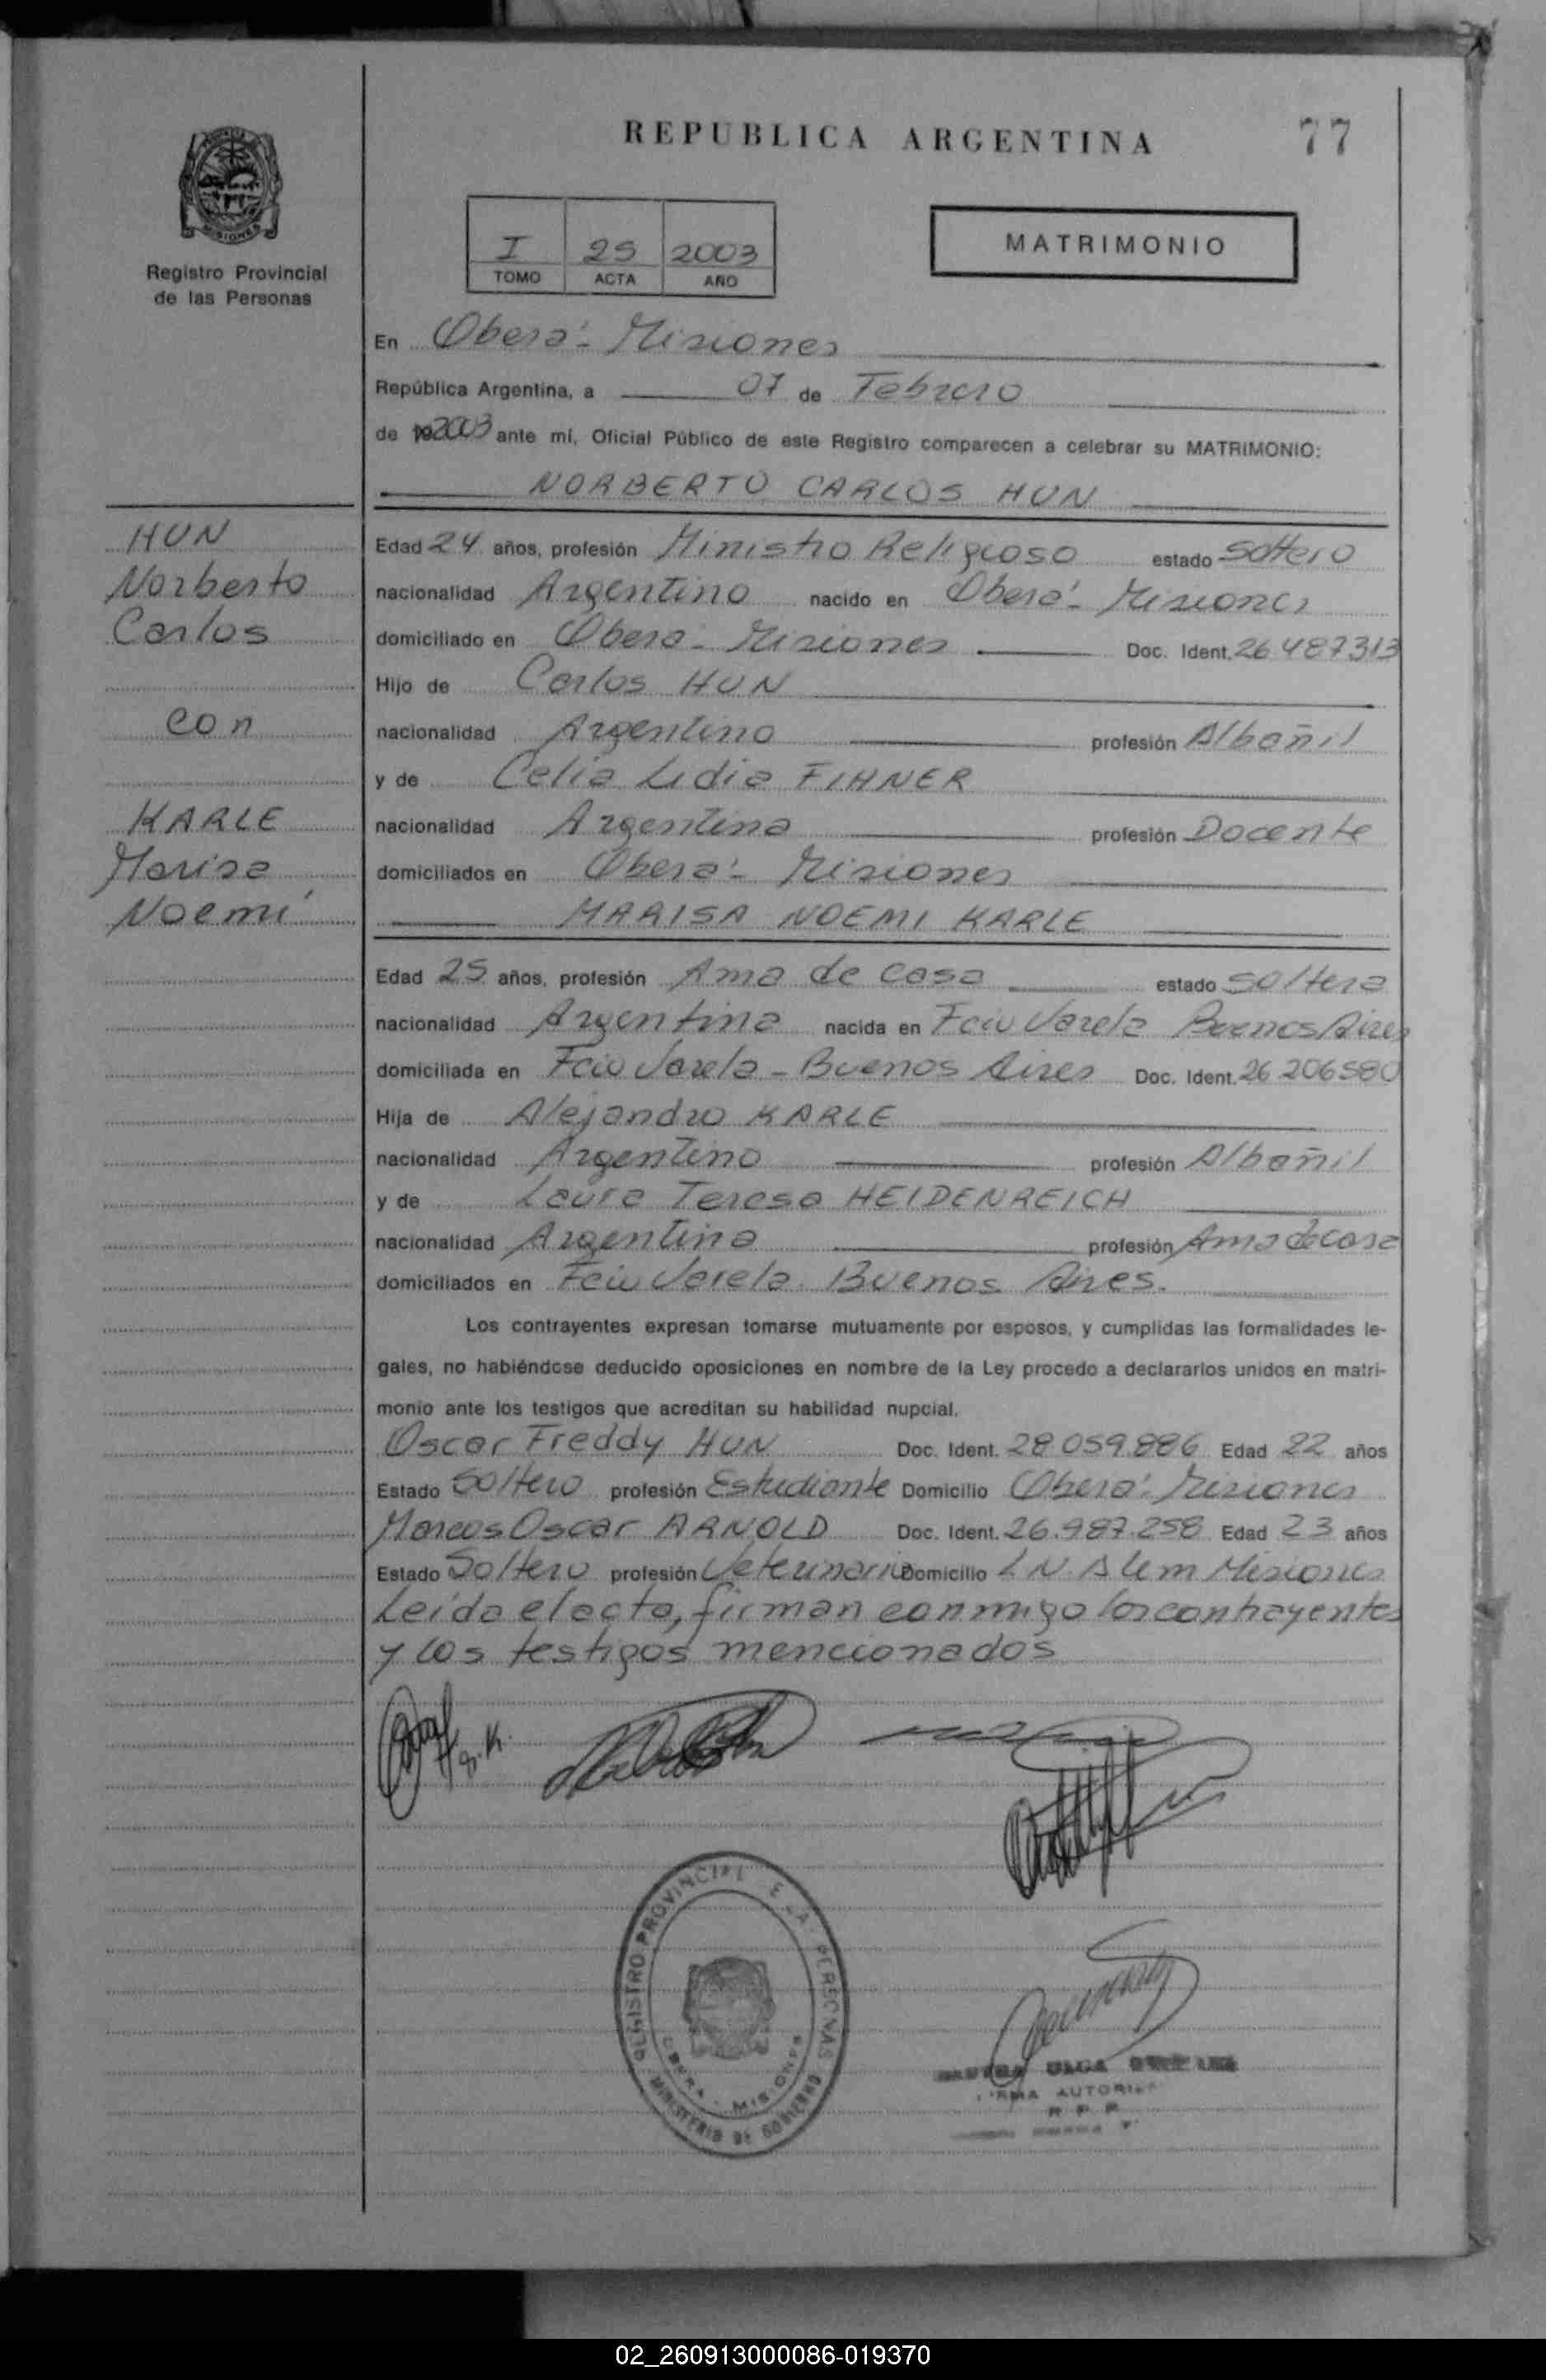 REPUBLICA ARGENTINA
77
MISIONES
Registro Provincial
de las Personas
I 25 2003
TOMO ACTA AÑO
MATRIMONIO
En Oberá - Misiones
República Argentina, a 07 de Febrero
de 2003 ante mí, Oficial Público de este Registro comparecen a celebrar su MATRIMONIO:
NORBERTO CARLOS HUN
HUN
Norberto
Carlos
con
KARLE
Marisa
Noemí
Edad 24 años, profesión Ministro Religioso estado soltero
nacionalidad Argentino nacido en Oberá - Misiones
domiciliado en Oberá - Misiones Doc. Ident. 26 487313
Hijo de Carlos HUN
nacionalidad Argentino profesión Albañil
y de Celia Lidia FIHNER
nacionalidad Argentina profesión Docente
domiciliados en Oberá - Misiones
MARISA NOEMI KARLE
Edad 25 años, profesión Ama de casa estado soltera
nacionalidad Argentina nacida en Fcio Varela Buenos Aires
domiciliada en Fcio Varela - Buenos Aires Doc. Ident. 26 206580
Hija de Alejandro KARLE
nacionalidad Argentino profesión Albañil
y de Laura Teresa HEIDENREICH
nacionalidad Argentina profesión Ama de casa
domiciliados en Fcio Varela Buenos Aires.
Los contrayentes expresan tomarse mutuamente por esposos, y cumplidas las formalidades le-
gales, no habiéndose deducido oposiciones en nombre de la Ley procedo a declararlos unidos en matri-
monio ante los testigos que acreditan su habilidad nupcial.
Oscar Freddy HUN Doc. Ident. 28.059.886 Edad 22 años
Estado Soltero profesión Estudiante Domicilio Oberá - Misiones
Marcos Oscar ARNOLD Doc. Ident. 26.987.258 Edad 23 años
Estado Soltero profesión Veterinario Domicilio L N. Alem Misiones
Leída el acta, firman conmigo los contrayentes
y los testigos mencionados
REGISTRO PROVINCIAL DE LAS PERSONAS
MINISTERIO DE GOBIERNO
OBERA - MISIONES
OLGA
FIRMA AUTORIZ
R P P
02_260913000086-019370